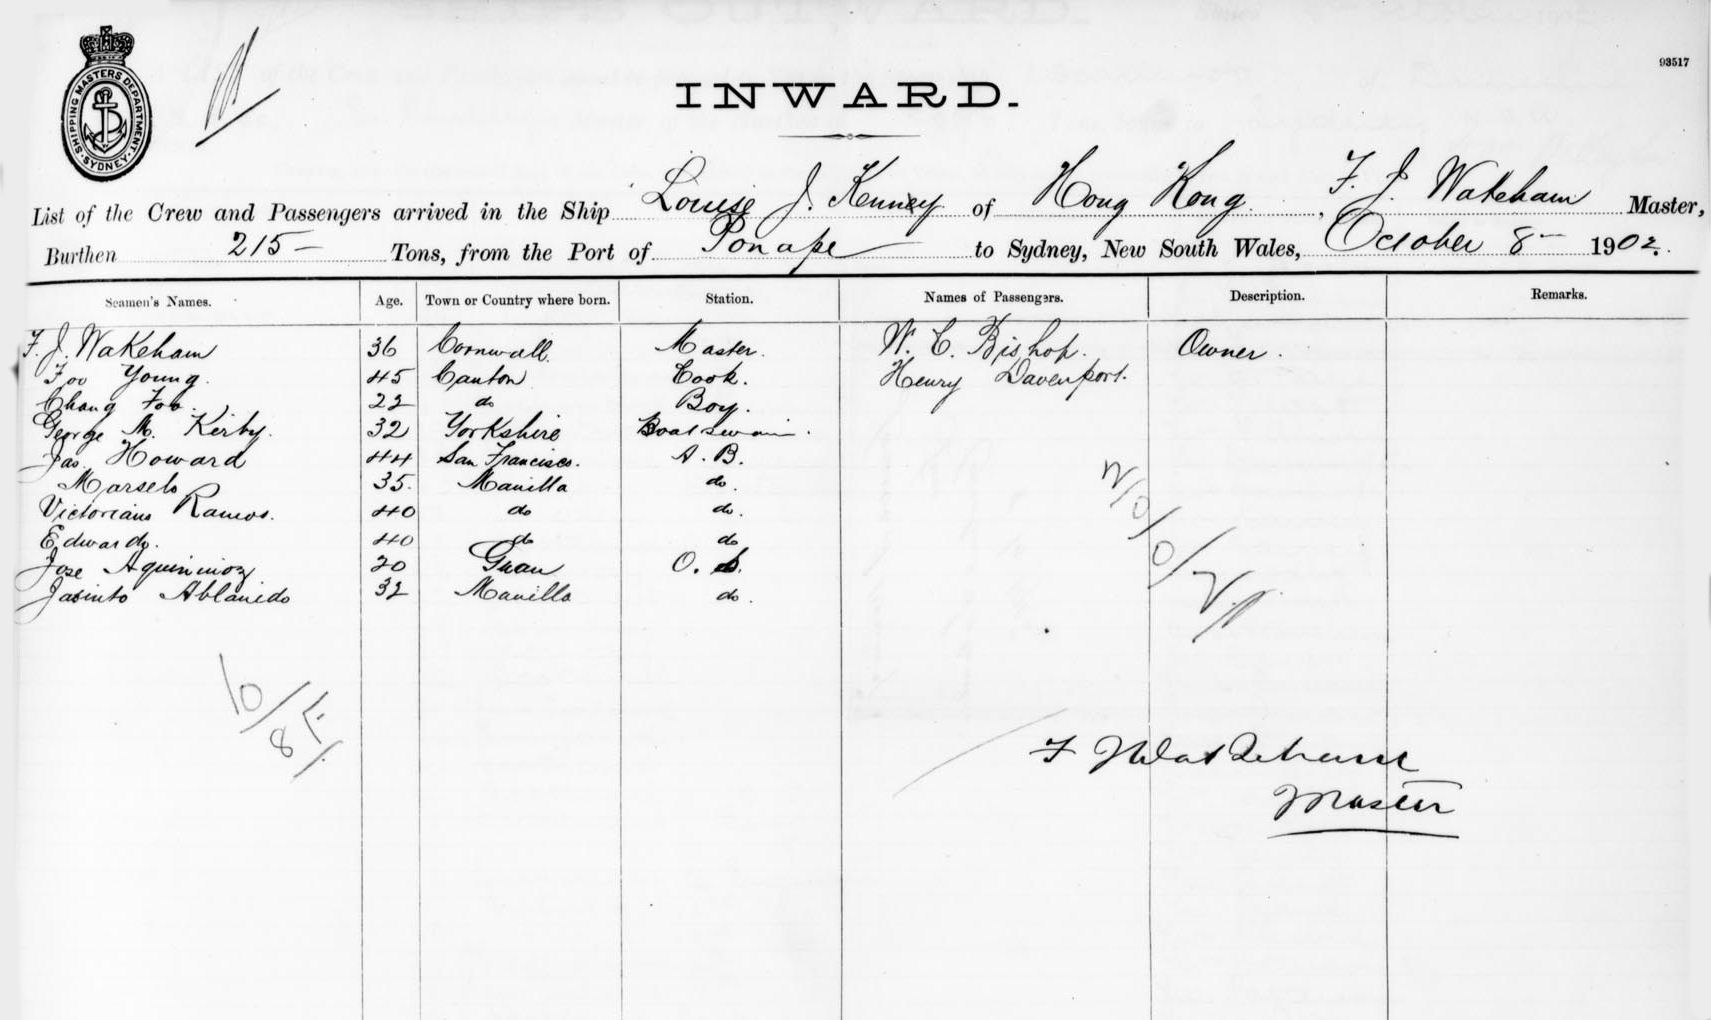 93517
SHIPPING MASTERS DEPARTMENT. SYDNEY.
INWARD.
List of the Crew and Passengers arrived in the Ship Louise J. Kenney of Hong Kong, F. J. Wakeham Master,
Burthen 215 — Tons, from the Port of Ponape to Sydney, New South Wales, October 8 — 1902.
Seamen's Names. Age. Town or Country where born. Station. Names of Passengers. Description. Remarks.
F. J. Wakeham 36 Cornwall. Master. W. C. Bishop. Owner.
Foo Young. 45 Canton Cook. Henry Davenport.
Chang Foo. 22 do Boy.
George M. Kirby. 32 Yorkshire Boatswain.
Jas. Howard 44 San Francisco. A. B.
Marselo 35. Manilla do.
Victoriano Ramos. 40 do do.
Edwardo. 40 do do
Jose 20 Guan O. S.
Jasinto Ablanido 32 Manilla do.
10/8
Master